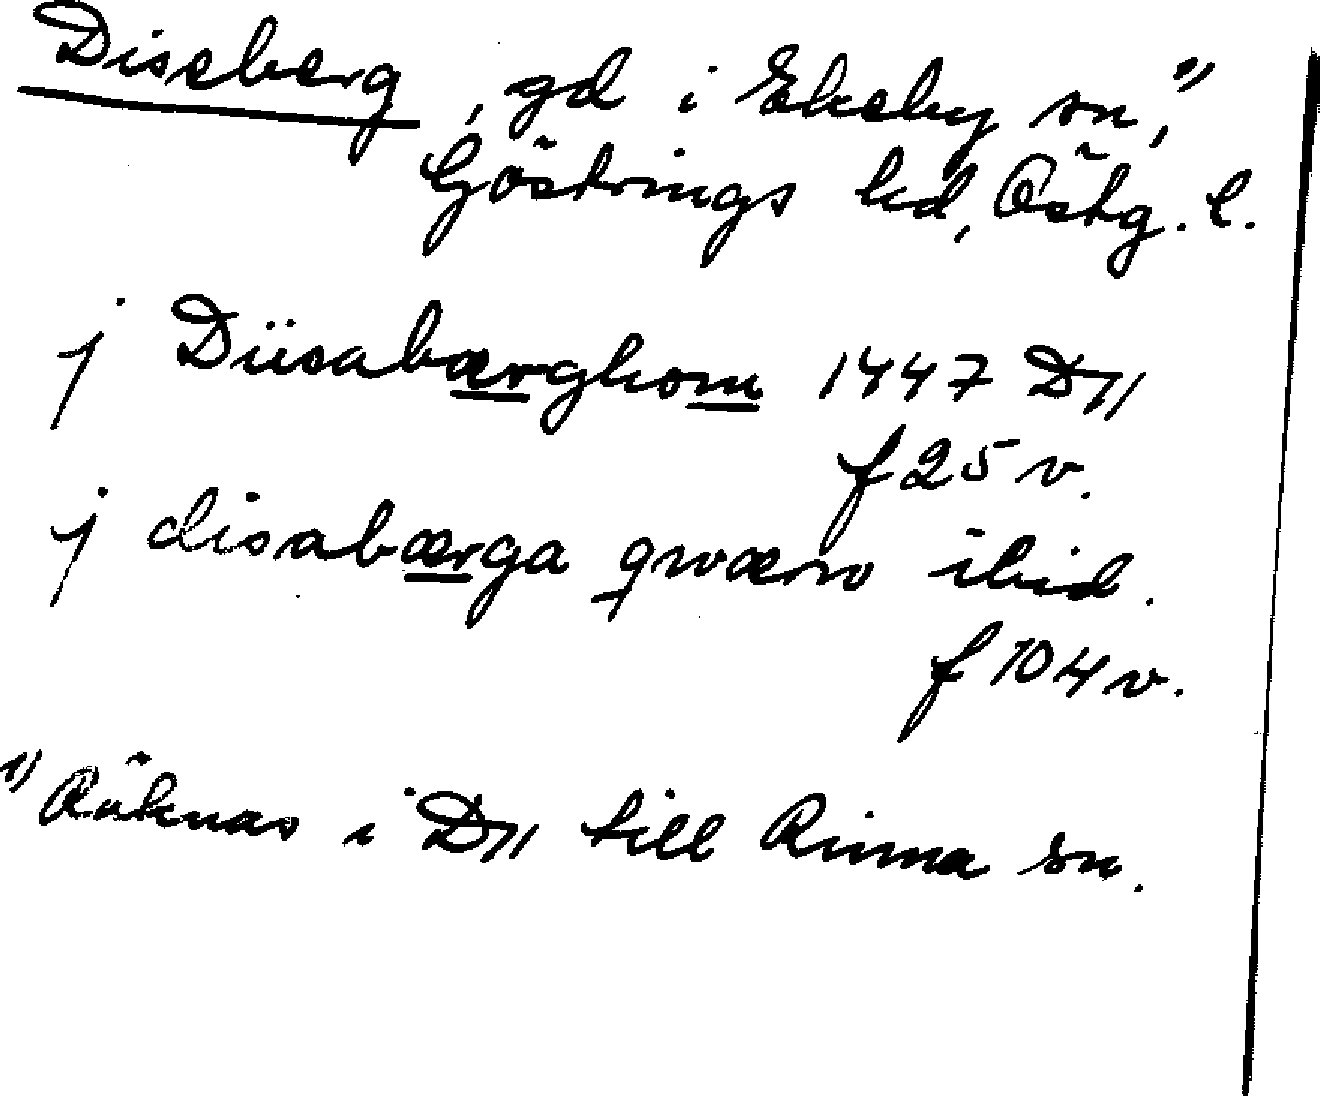 Diseberg, gd i Ekeby sn,¹⁾
Göstrings hd, Östg. l.
j Diisabærghom 1447 D11
f 25 v.
j disabærga qwærn ibid.
f 104 v.
¹⁾ Räknas i D11 till Rinna sn.